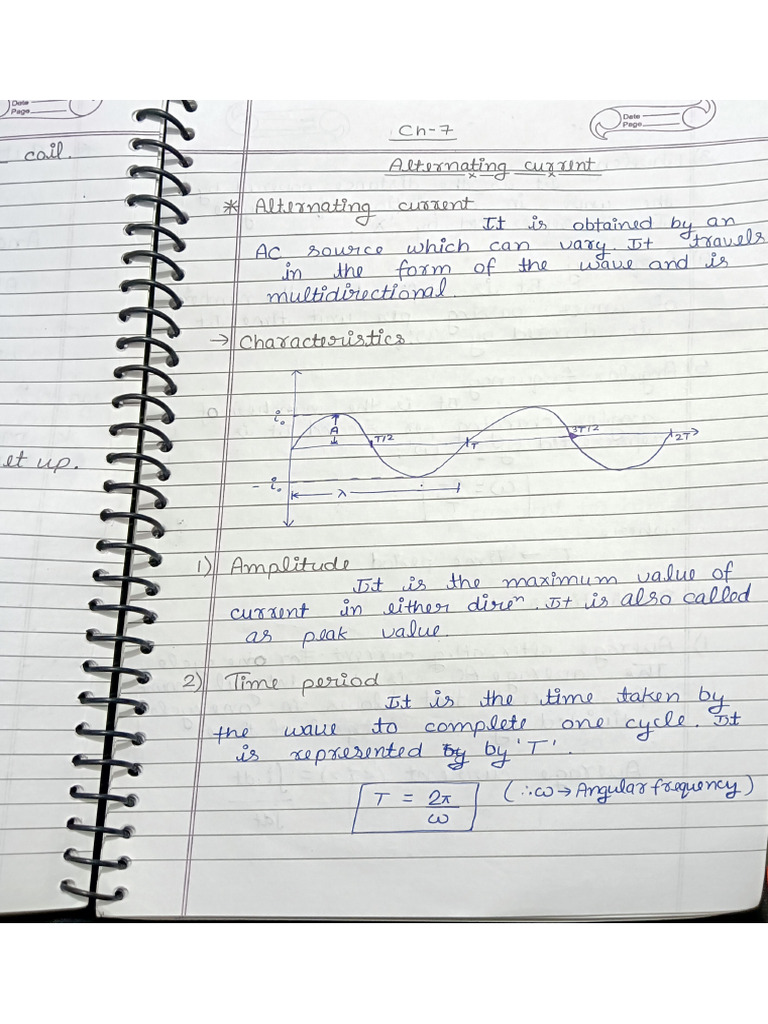 Date
Page
Date
Page
cail.
et up.
Ch-7
Alternating current
* Alternating current
It is obtained by an
AC source which can vary. It travels
in the form of the wave and is
multidirectional.
→ Characteristics
i₀
A
T/2
T
3T/2
2T
- i₀
λ
1) Amplitude
It is the maximum value of
current in either direⁿ. It is also called
as peak value.
2) Time period
It is the time taken by
the wave to complete one cycle. It
is represented by by 'T'.
T = 2π/ω (∴ω → Angular frequency)